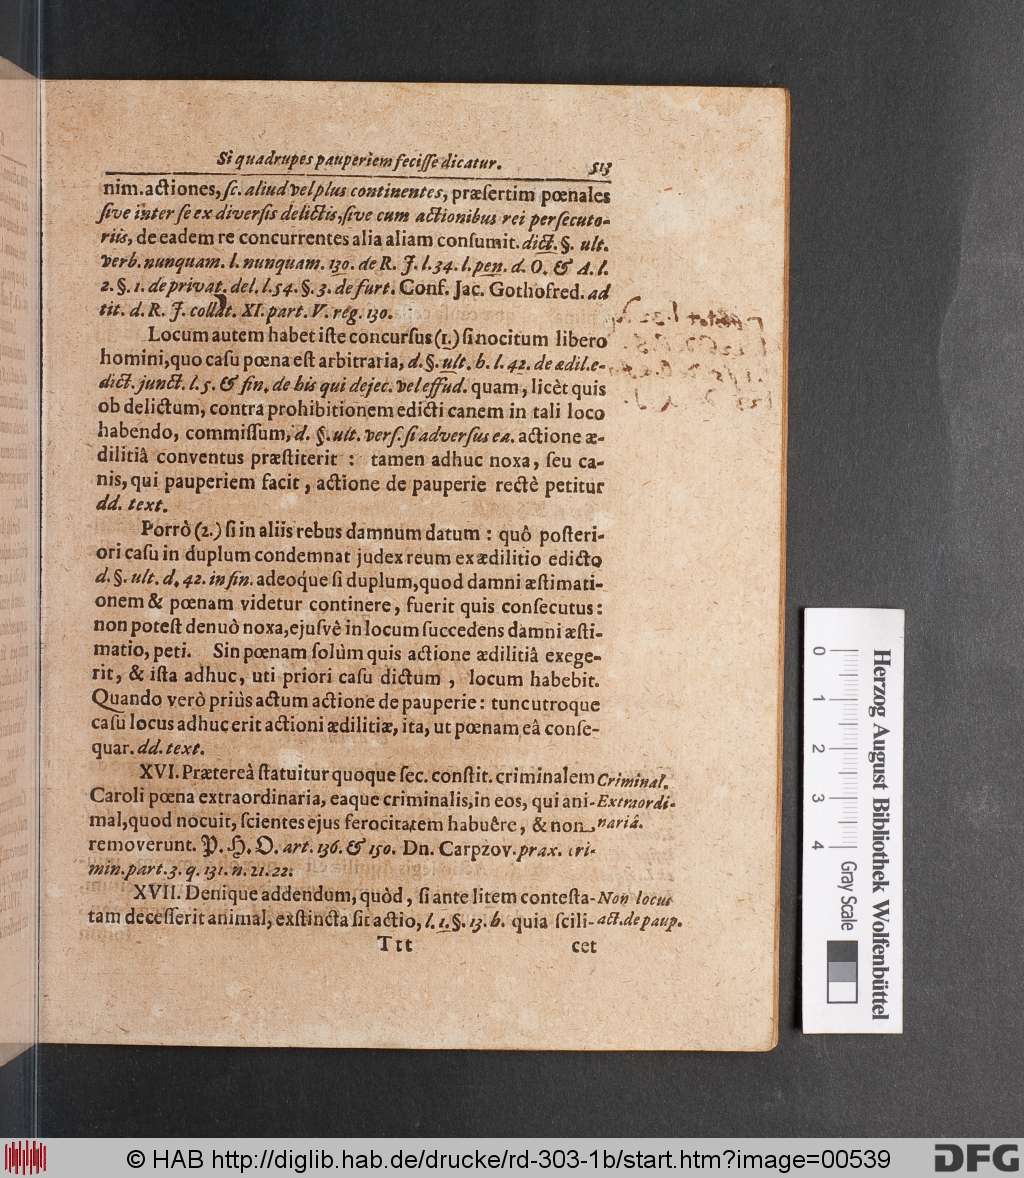 Si quadrupes pauperiem fecisse dicatur. 513
nim. actiones, sc. aliud vel plus continentes, præsertim pœnales
sive inter se ex diversis delictis, sive cum actionibus rei persecuto-
riis, de eadem re concurrentes alia aliam consumit. dict. §. ult.
verb. nunquam. l. nunquam. 130. de R. J. l. 34. l. pen. d. O. & A. l.
2. §. 1. de privat. del. l. 54. §. 3. de furt. Conf. Jac. Gothofred. ad
tit. d. R. J. collat. XI. part. V. reg. 130.
Locum autem habet iste concursus (1.) si nocitum libero
homini, quo casu pœna est arbitraria, d. §. ult. h. l. 42. de ædil. e-
dict. junct. l. 5. & fin. de his qui dejec. vel effud. quam, licèt quis
ob delictum, contra prohibitionem edicti canem in tali loco
habendo, commissum, d. §. ult. vers. si adversus ea. actione æ-
dilitiâ conventus præstiterit : tamen adhuc noxa, seu ca-
nis, qui pauperiem facit, actione de pauperie rectè petitur
dd. text.
Porrò (2.) si in aliis rebus damnum datum : quô posteri-
ori casu in duplum condemnat judex reum ex ædilitio edicto
d. §. ult. d. 42. in fin. adeoque si duplum, quod damni æstimati-
onem & pœnam videtur continere, fuerit quis consecutus:
non potest denuò noxa, ejusvè in locum succedens damni æsti-
matio, peti. Sin pœnam solùm quis actione ædilitiâ exege-
rit, & ista adhuc, uti priori casu dictum, locum habebit.
Quando verò priùs actum actione de pauperie: tunc utroque
casu locus adhuc erit actioni ædilitiæ, ita, ut pœnam eâ conse-
quar. dd. text.
XVI. Prætereâ statuitur quoque sec. constit. criminalem Criminal.
Caroli pœna extraordinaria, eaque criminalis, in eos, qui ani- Extraordi-
mal, quod nocuit, scientes ejus ferocitatem habuêre, & non nariâ.
removerunt. P. H. O. art. 136. & 150. Dn. Carpzov. prax. cri-
min. part. 3. q. 131. n. 21. 22.
XVII. Denique addendum, quòd, si ante litem contesta- Non locus
tam decesserit animal, exstincta sit actio, l. 1. §. 13. h. quia scili- act. de paup.
Ttt cet
Herzog August Bibliothek Wolfenbüttel
0 1 2 3 4 Gray Scale
© HAB http://diglib.hab.de/drucke/rd-303-1b/start.htm?image=00539
DFG